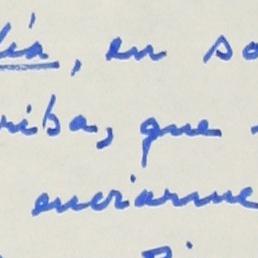 lia, en so
riba, que
encriarme